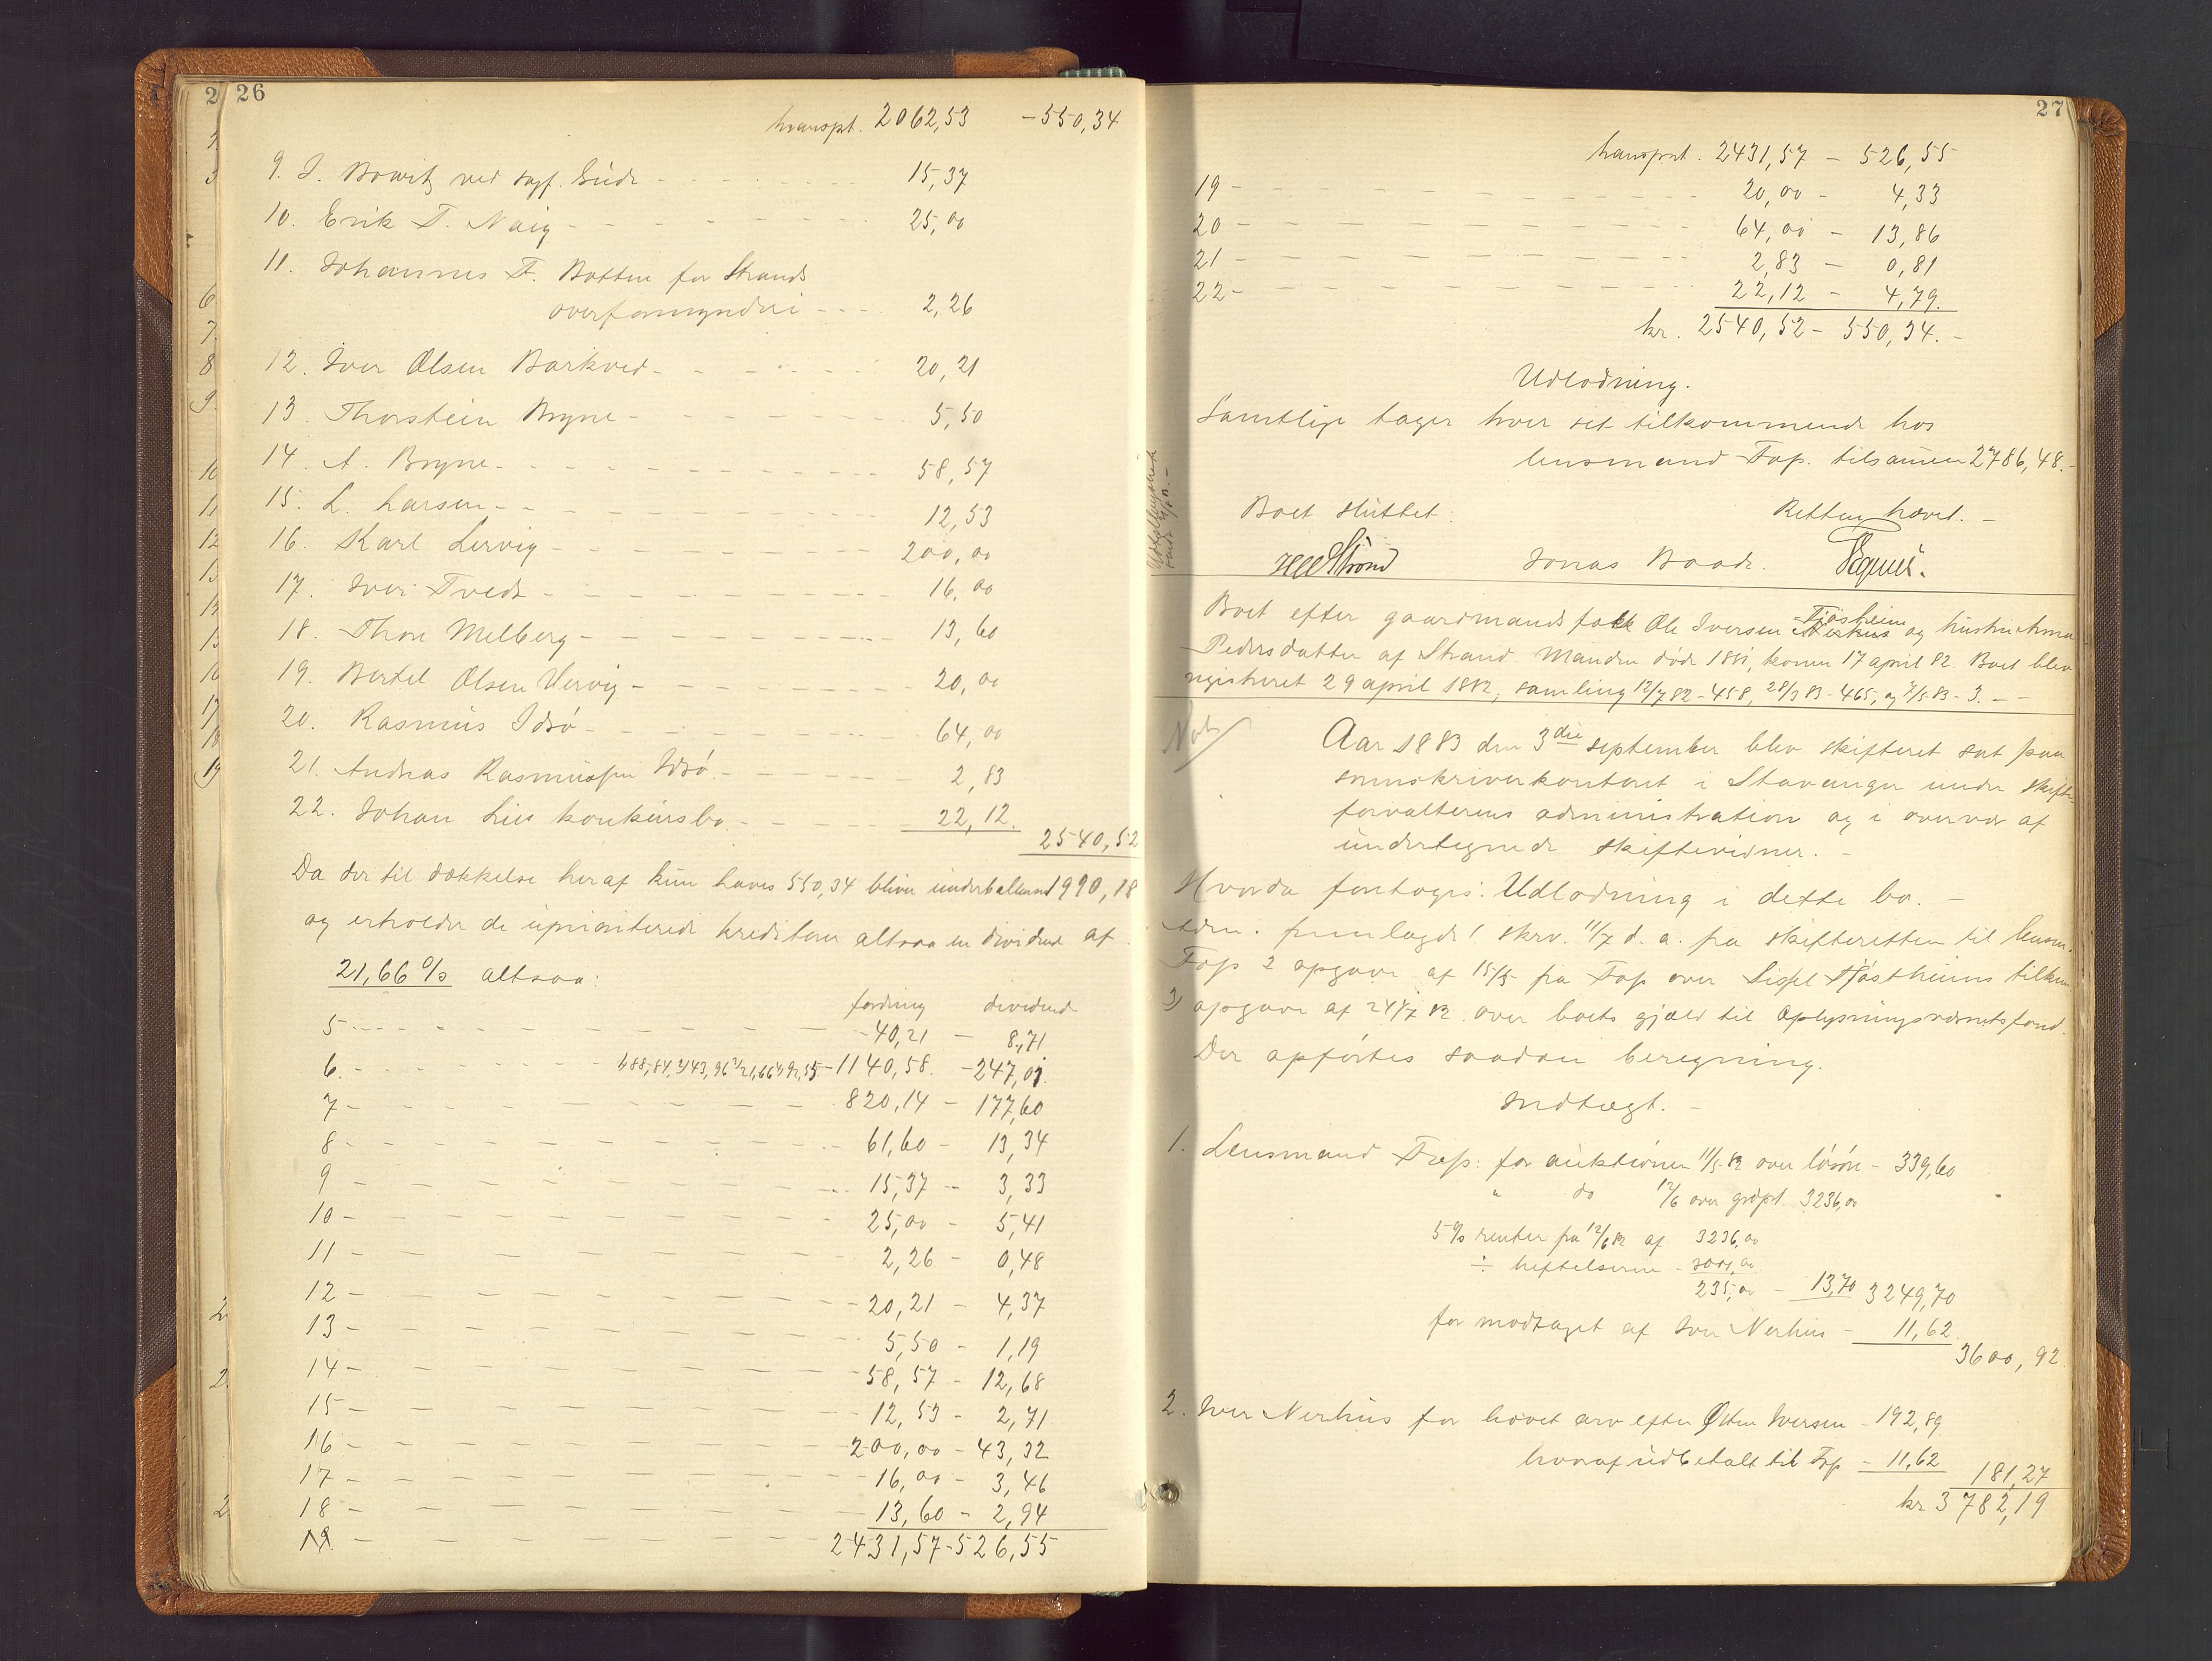 26
transpt. 2062,53 - 550,34
9. J. Bowitz ved sagf. Gude - 15,37
10. Erik T. Naig - 25,00
11. Johannes T. Botten for Strands
overformynderi - 2,26
12. Iver Olsen Barkved - 20,21
13. Thorstein Bryne - 5,50
14. A. Bryne - 58,57
15. L. Larsen - 12,53
16. Karl Lervig - 200,00
17. Iver Tvedt - 16,00
18. Thore Melberg - 13,60
19. Bertel Olsen Vervig - 20,00
20. Rasmus Idsö - 64,00
21. Andreas Rasmussen Idsö - 2,83
22. Johan Lies konkursbo - 22,12.
2540,52
Da der til dækkelse heraf kun haves 550,34 bliver underballance 1990,18
og erholder de uprioriterede kreditorer altsaa en dividende af
21,66 % altsaa:
fordring dividende
5 - 40,21 - 8,71
6. - 1140,58. - 247,01.
7 - 820,14 - 177,60
8 - 61,60 - 13,34
9 - 15,37 - 3,33
10 - 25,00 - 5,41
11 - 2,26 - 0,48
12 - 20,21 - 4,37
13 - 5,50 - 1,19
14 - 58,57 - 12,68
15 - 12,53 - 2,71
16 - 200,00 - 43,32
17 - 16,00 - 3,46
18 - 13,60 - 2,94
2431,57 - 526,55
27
transprt. 2431,57 - 526,55
19 - 20,00 - 4,33
20 - 64,00 - 13,86
21 - 2,83 - 0,81
22 - 22,12 - 4,79.
kr. 2540,52 - 550,34. -
Udlodning.
Samtlige tager hver sit tilkommende hos
lensmand Fop. tilsamen 2786,48. -
Boet sluttet. Retten hævet. -
Jonas Baade.
Boet efter gaardmandsfolk Ole Iversen Tjöstheim og hustru Anna
Pedersdatter af Strand. Manden döde 1881, konen 17 april 82. Boet blev
registreret 29 april 1882, samling 12/7 82 - 458, 28/3 83 - 465, og 7/5 83 - 3. -
Not
Aar 1883 den 3die september blev skifteret sat paa
sorenskriverkontoret i Stavanger under skifte-
forvalterens administration og i overvær af
undertegnede skiftevidner. -
Hvorda foretoges: Udlodning i dette bo. -
Adm. fremlagde 1 skrv. 11/7 d. a. fra skifteretten til lensm.
Fop 2 opgave af 15/5 fra Fop over Sissel Tjöstheims tilkom.
3) opgave af 24/7 82 over boets gjæld til Oplysningsvæsenets fond.
Der opförtes saadan beregning.
Indtægt. -
1. Lensmand Fop: for auktionen 11/5 82 over lösöre - 339,60
" do 12/6 over grdpt. 3236,00
5 % renter fra 12/6 82 af 3236,00
÷ heftelserne - 3001,00
235,00 - 13,70 3249,70
for modtaget af Iver Nerhus - 11,62.
3600,92
2. Iver Nerhus for hævet arv efter Östen Iversen - 192,89
hvoraf udbetalt til Fop - 11,62 181,27
kr 3782,19